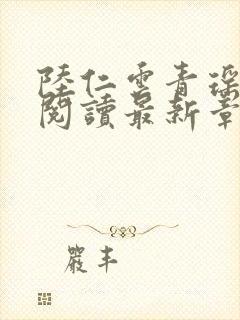 陸仁雲青瑤
閱讀最新章
嚴丰